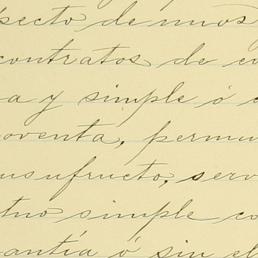 specto de unos
contratos de co
a y simple ó c
oventa, permu
usufructo, serv
tuo simple co
antía ó sin el